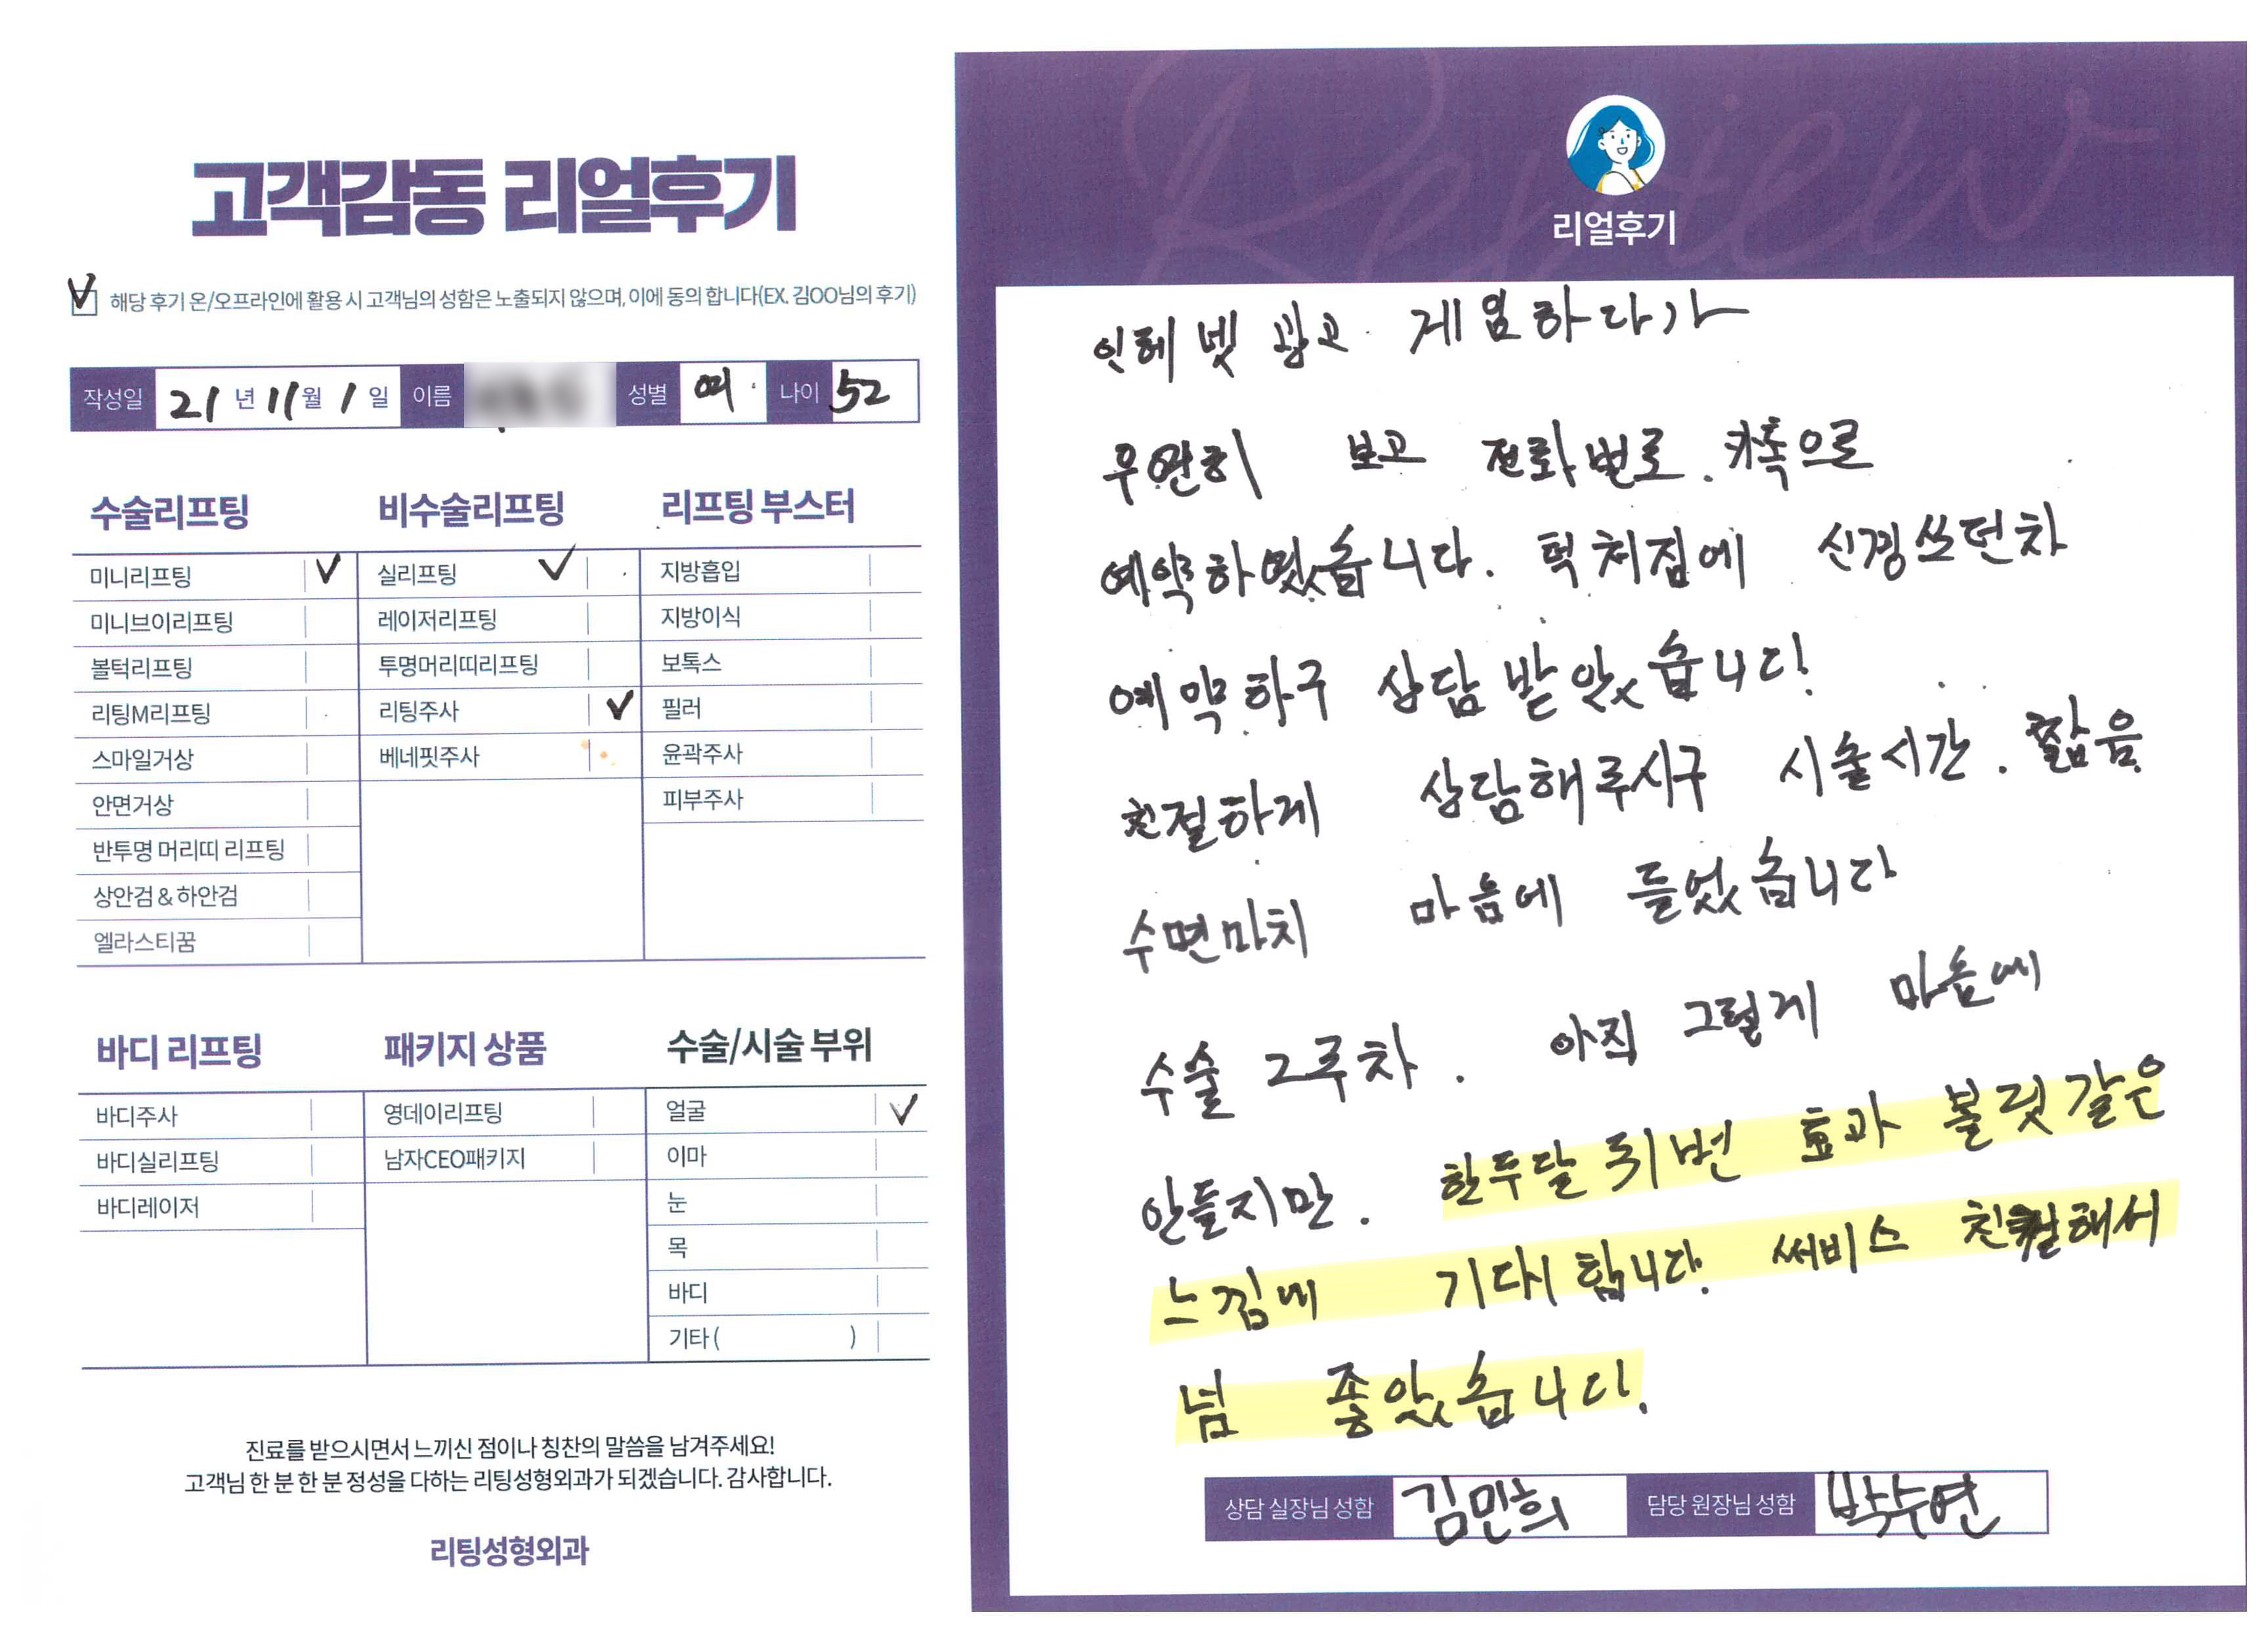 고객감동 리얼후기
해당 후기 온/오프라인에 활용 시 고객님의 성함은 노출되지 않으며, 이에 동의 합니다(EX. 김OO님의 후기)
작성일 21 년 11 월 1 일 이름 성별 여 나이 52
수술리프팅
미니리프팅
미니브이리프팅
볼턱리프팅
리팅M리프팅
스마일거상
안면거상
반투명 머리띠 리프팅
상안검 & 하안검
엘라스티꿈
비수술리프팅
실리프팅
레이저리프팅
투명머리띠리프팅
리팅주사
베네핏주사
리프팅 부스터
지방흡입
지방이식
보톡스
필러
윤곽주사
피부주사
바디 리프팅
바디주사
바디실리프팅
바디레이저
패키지 상품
영데이리프팅
남자CEO패키지
수술/시술 부위
얼굴
이마
눈
목
바디
기타 ( )
진료를 받으시면서 느끼신 점이나 칭찬의 말씀을 남겨주세요!
고객님 한 분 한 분 정성을 다하는 리팅성형외과가 되겠습니다. 감사합니다.
리팅성형외과
Review
리얼후기
인테넷 광고. 게임하다가
우연히 보고 전화번로. 카톡으로
예약하였습니다. 턱 처짐에 신경쓰던차
예약하구 상담 받았습니다!
친절하게 상담해주시구 시술시간. 짧음
수면마취 마음에 들었습니다
수술 2주차. 아직 그렇게 마음에
안들지만. 한두달 뒤번 효과 볼릿 같은
느낌에 기대합니다. 써비스 친절해서
넘 좋았습니다.
상담 실장님 성함 김민희 담당 원장님 성함 박수연